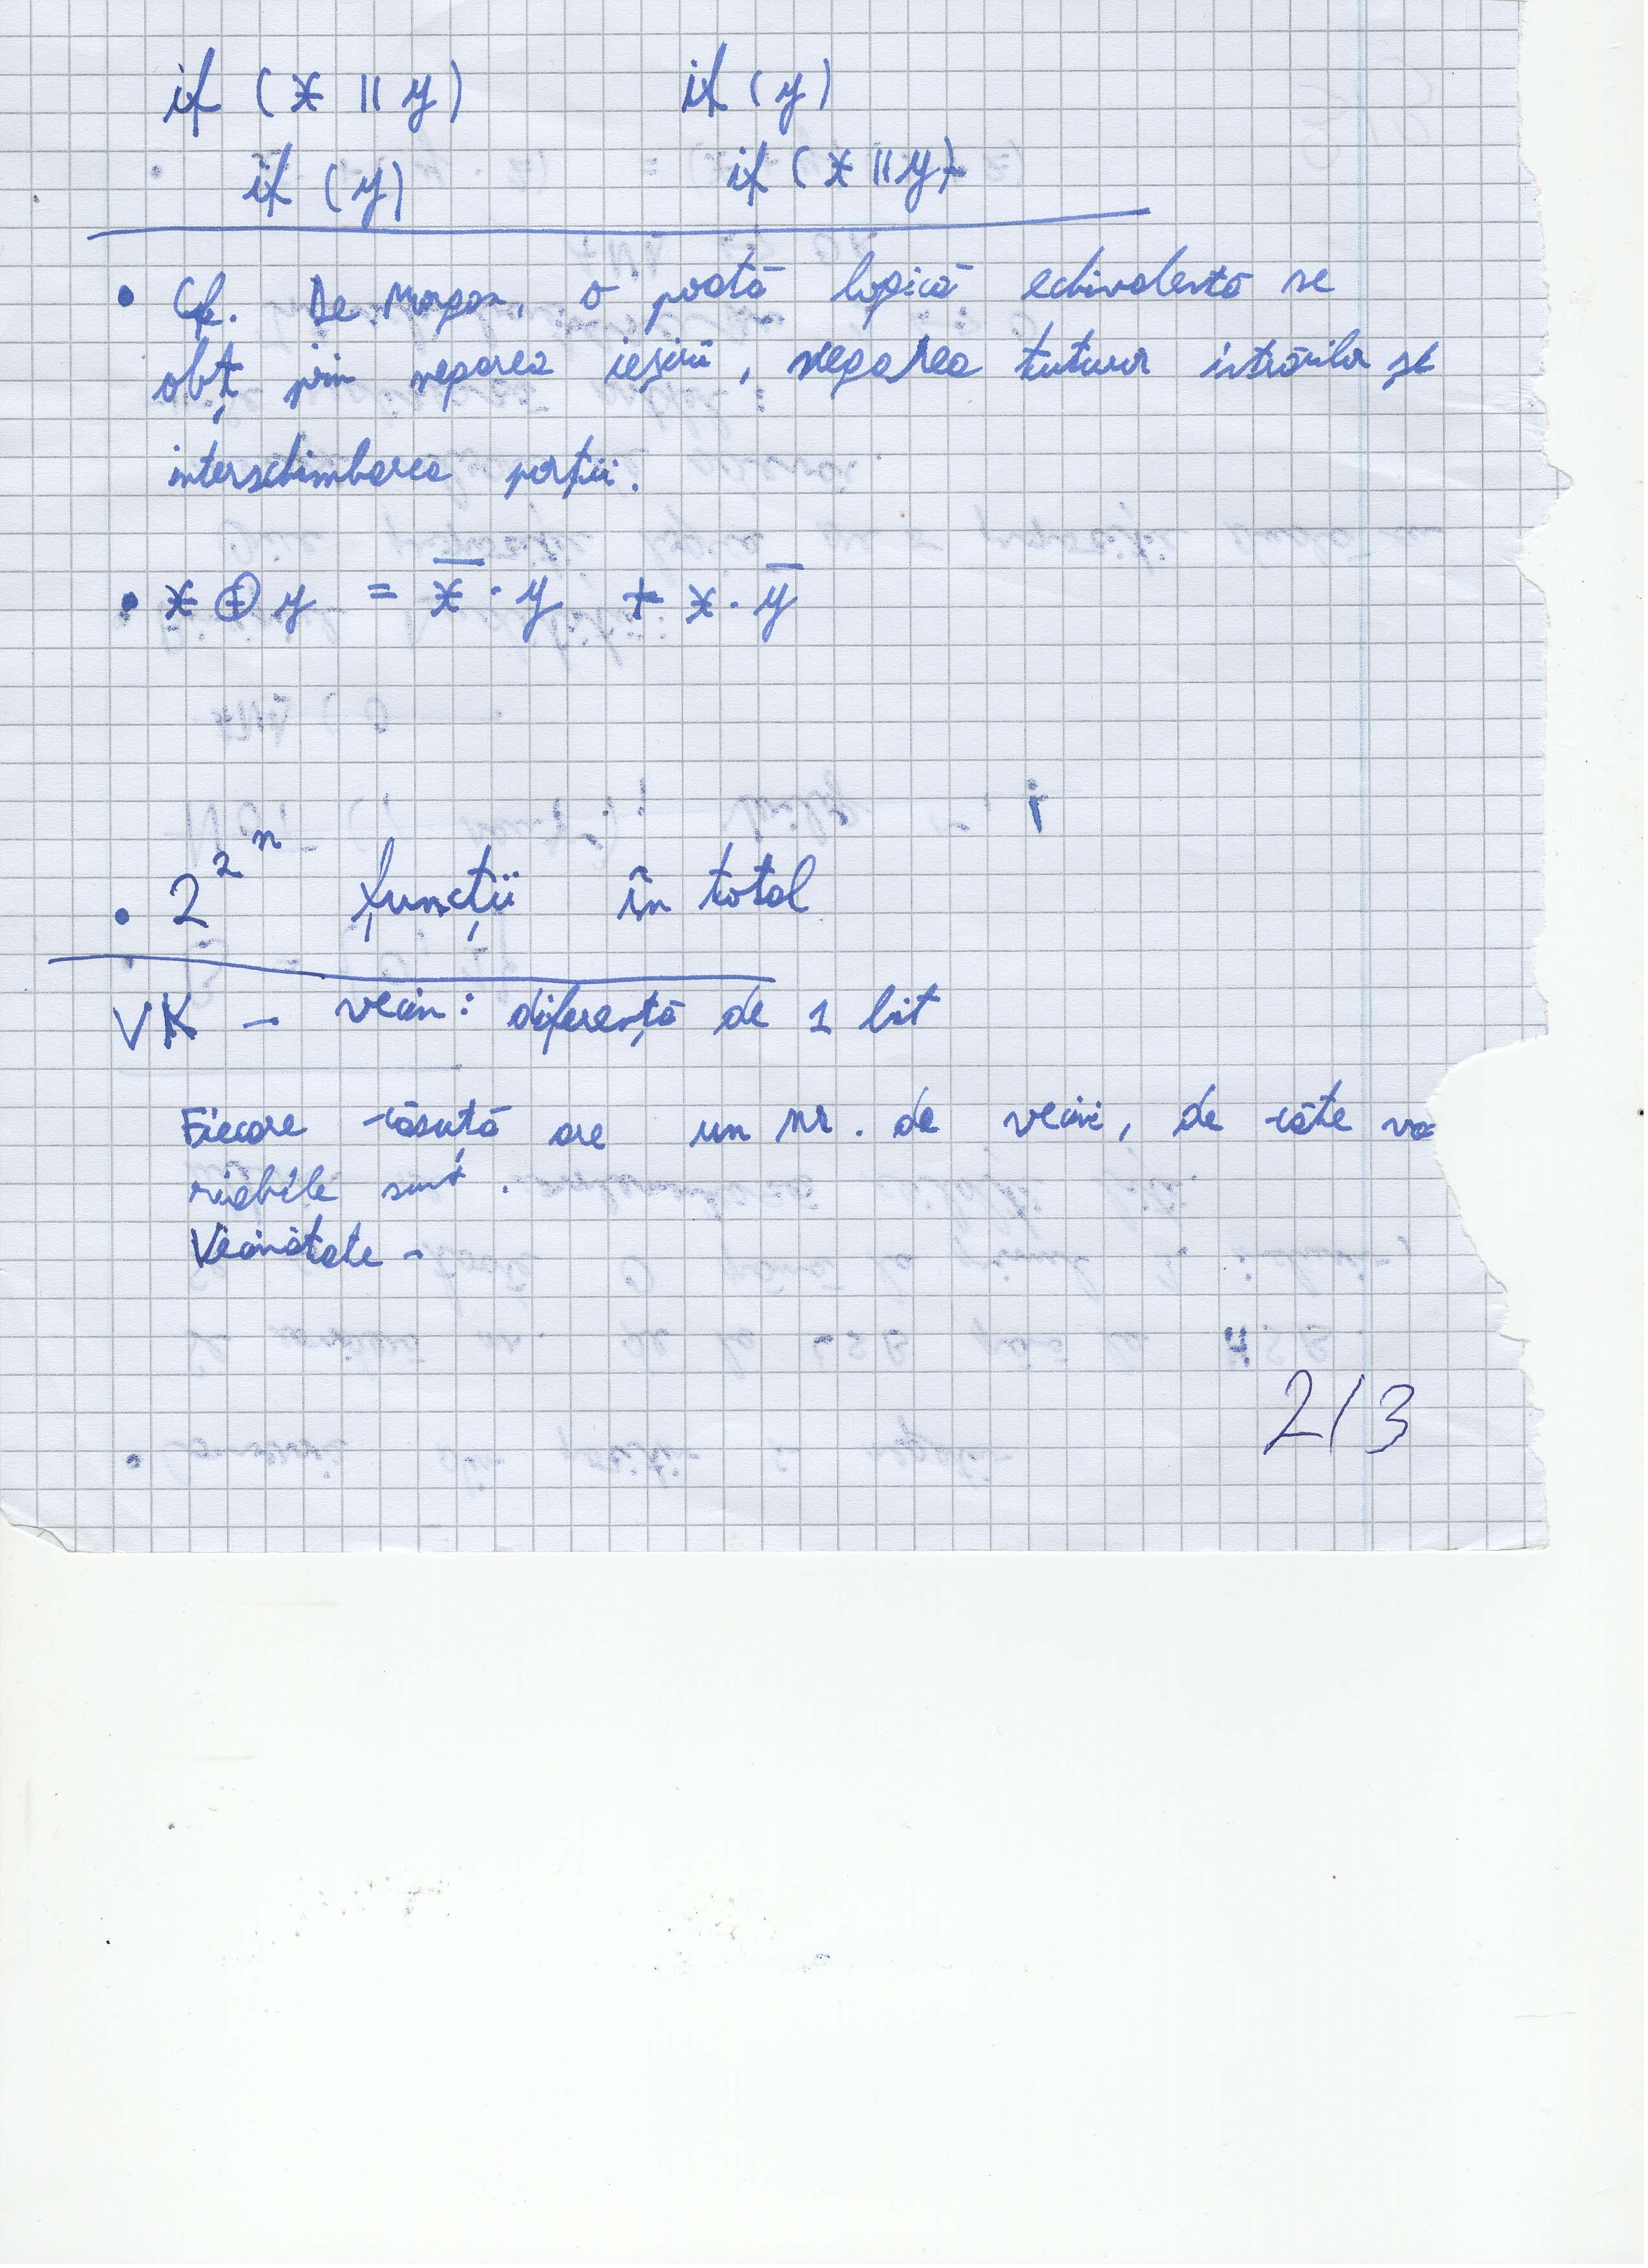 if (x || y)    if (y)
if (y)    if (x || y)
• Cf. De Morgan, o poartă logică echivalentă se
obț. prin negarea ieșirii, negarea tuturor intrărilor și
interschimbarea porții.
• x ⊕ y = x̅ · y + x · y̅
• 2^2^n funcții în total
VK - vecin: diferență de 1 bit
Fiecare căsuță are un nr. de vecini, de câte va
riabile sunt.
Vecinătate -
2/3